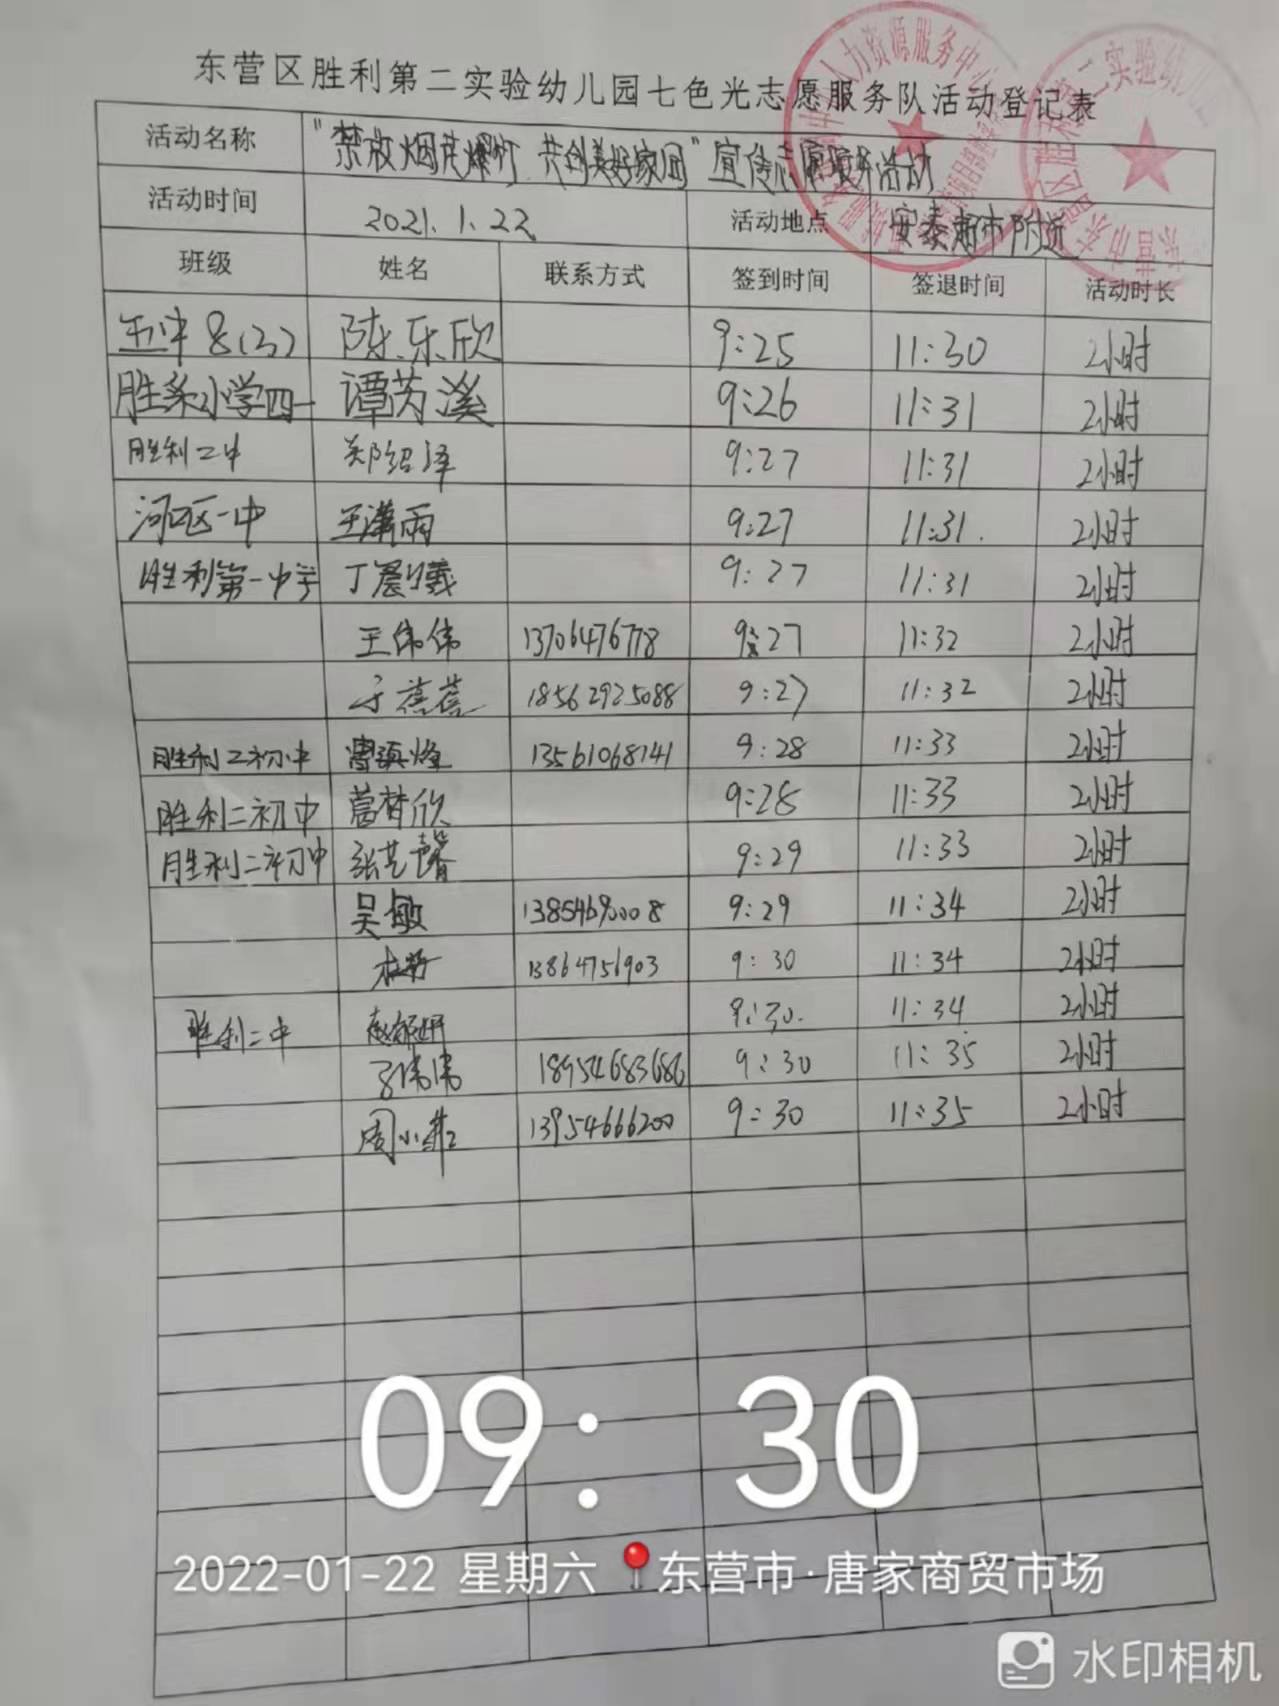 东营区胜利第二实验幼儿园七色光志愿服务队活动登记表
活动名称 "禁放烟花爆竹 共创美好家园"宣传志愿服务活动
活动时间 2021.1.22 活动地点 安泰超市附近
班级 姓名 联系方式 签到时间 签退时间 活动时长
五中8(3) 陈乐欣 9:25 11:30 2小时
胜采小学四一 谭芮溪 9:26 11:31 2小时
胜利二中 郑绍泽 9:27 11:31 2小时
河口区一中 王潇雨 9:27 11:31. 2小时
胜利第一中学 丁晨曦 9:27 11:31 2小时
王伟伟 13706476778 9:27 11:32 2小时
于蓓蓓 18562925088 9:27 11:32 2小时
胜利二初中 曹 13561068141 9:28 11:33 2小时
胜利二初中 欣 9:28 11:33 2小时
胜利二初中 张艺馨 9:29 11:33 2小时
吴敏 13854690008 9:29 11:34 2小时
13864756903 9:30 11:34 2小时
胜利二中 赵 妍 9:30. 11:34 2小时
伟伟 18954683686 9:30 11:35 2小时
周小 13954666200 9:30 11:35 2小时
09: 30
2022-01-22 星期六 东营市·唐家商贸市场
水印相机